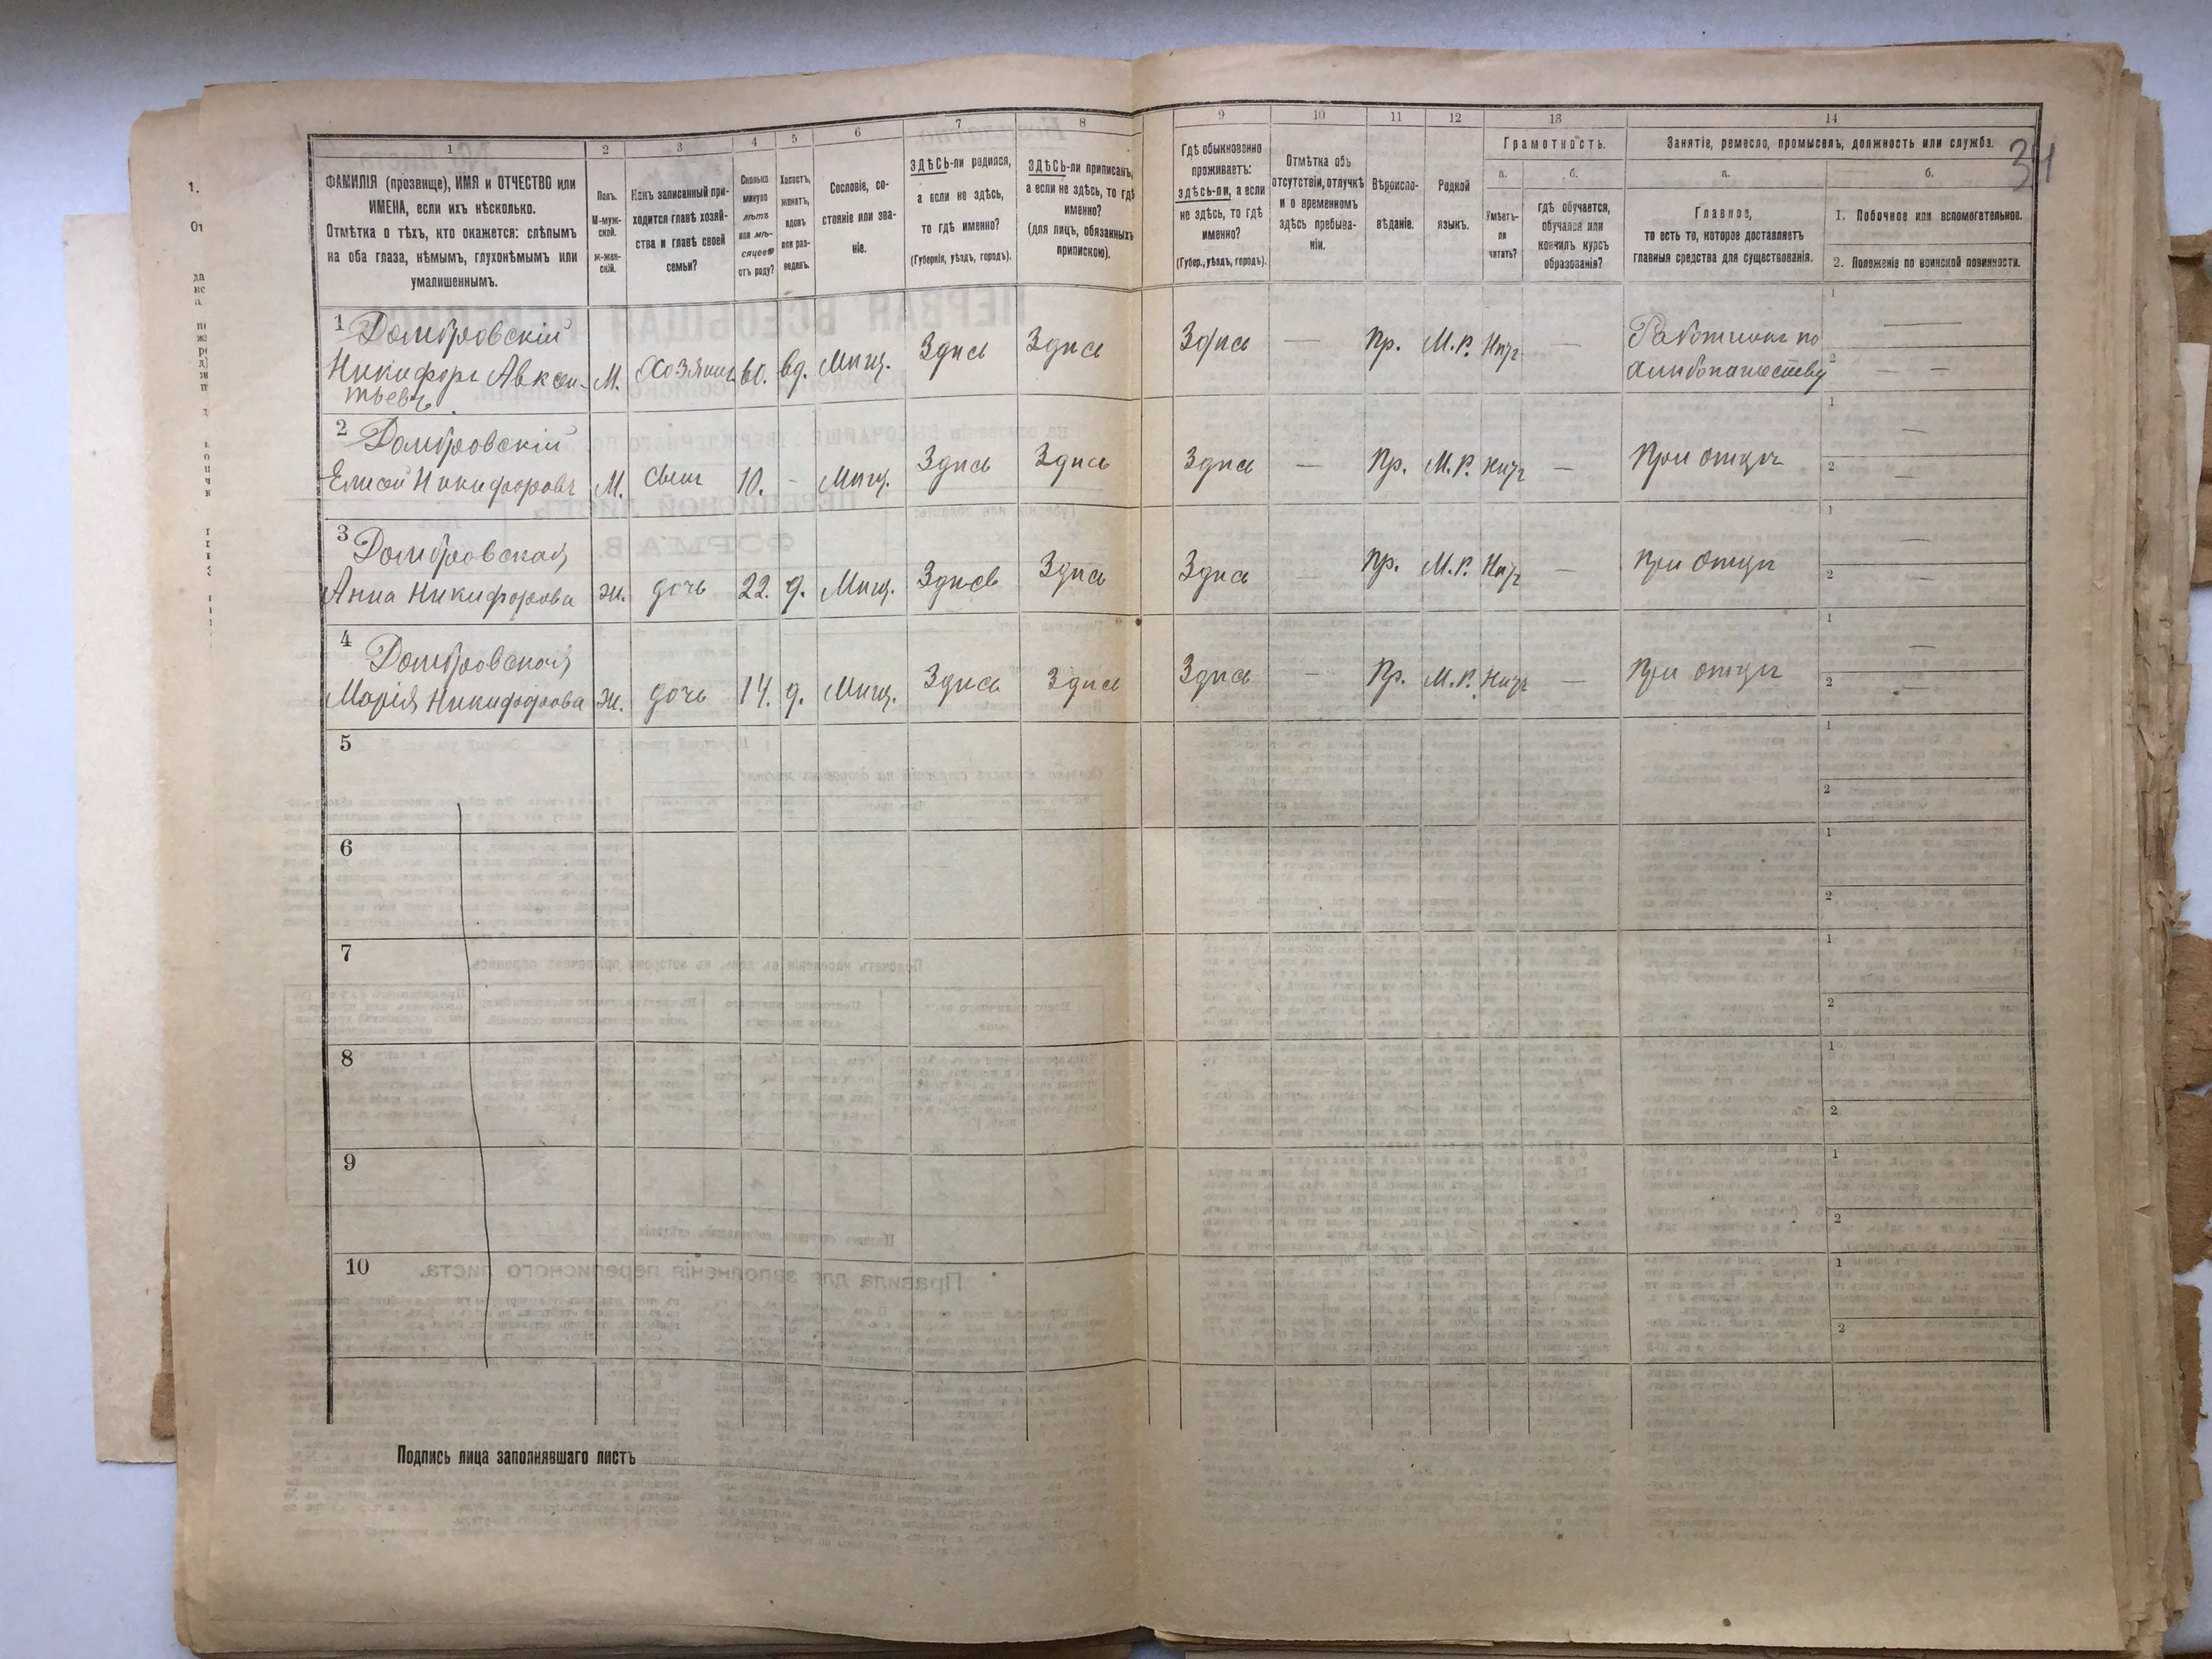 34
1
ФАМИЛІЯ (прозвище), ИМЯ и ОТЧЕСТВО или
ИМЕНА, если ихъ нѣсколько.
Отмѣтка о тѣхъ, кто окажется: слѣпымъ
на оба глаза, нѣмымъ, глухонѣмымъ или
умалишеннымъ.
2
Полъ.
М-муж-
ской.
ж-жен-
скій.
3
Какъ записанный при-
ходится главѣ хозяй-
ства и главѣ своей
семьи?
4
Сколько
минуло
лѣтъ
или мѣ-
сяцевъ
отъ роду?
5
Холостъ,
женатъ,
вдовъ
или раз-
веденъ.
6
Сословіе, со-
стояніе или зва-
ніе.
7
ЗДѢСЬ-ли родился,
а если не здѣсь,
то гдѣ именно?
(Губернія, уѣздъ, городъ).
8
ЗДѢСЬ-ли приписанъ,
а если не здѣсь, то гдѣ
именно?
(для лицъ, обязанныхъ
припискою).
9
Гдѣ обыкновенно
проживаетъ:
здѣсь-ли, а если
не здѣсь, то гдѣ
именно?
(Губер., уѣздъ, городъ).
10
Отмѣтка объ
отсутствіи, отлучкѣ
и о временномъ
здѣсь пребыва-
ніи.
11
Вѣроиспо-
вѣданіе.
12
Родной
языкъ.
13
Грамотность.
а.
Умѣетъ-
ли
читать?
б.
гдѣ обучается,
обучался или
кончилъ курсъ
образованія?
14
Занятіе, ремесло, промыселъ, должность или служба.
а.
Главное,
то есть то, которое доставляетъ
главныя средства для существованія.
б.
1. Побочное или вспомогательное.
2. Положеніе по воинской повинности.
1 Домбровскій
Никифоръ Авксен-
тьевъ
М. Хозяинъ 60. вд. Мѣщ. Здѣсь Здѣсь Здѣсь — Пр. М.Р. Нѣтъ — Работникъ по
хлѣбопашеству
1 —
2 — —
2 Домбровскій
Елисей Никифоровъ М. Сынъ 10. - Мѣщ. Здѣсь Здѣсь Здѣсь — Пр. М.Р. нѣтъ — При отцѣ
1 —
2 —
3 Домбровская
Анна Никифорова Ж. дочь 22. д. Мѣщ. Здѣсь Здѣсь Здѣсь — Пр. М.Р. Нѣтъ — При отцѣ
1 —
2 —
4 Домбровская
Марія Никифорова Ж. дочь 14. д. Мѣщ. Здѣсь Здѣсь Здѣсь — Пр. М.Р. Нѣтъ — При отцѣ
1 —
2 —
5
1
2
6
1
2
7
1
2
8
1
2
9
1
2
10
1
2
Подпись лица заполнявшаго листъ